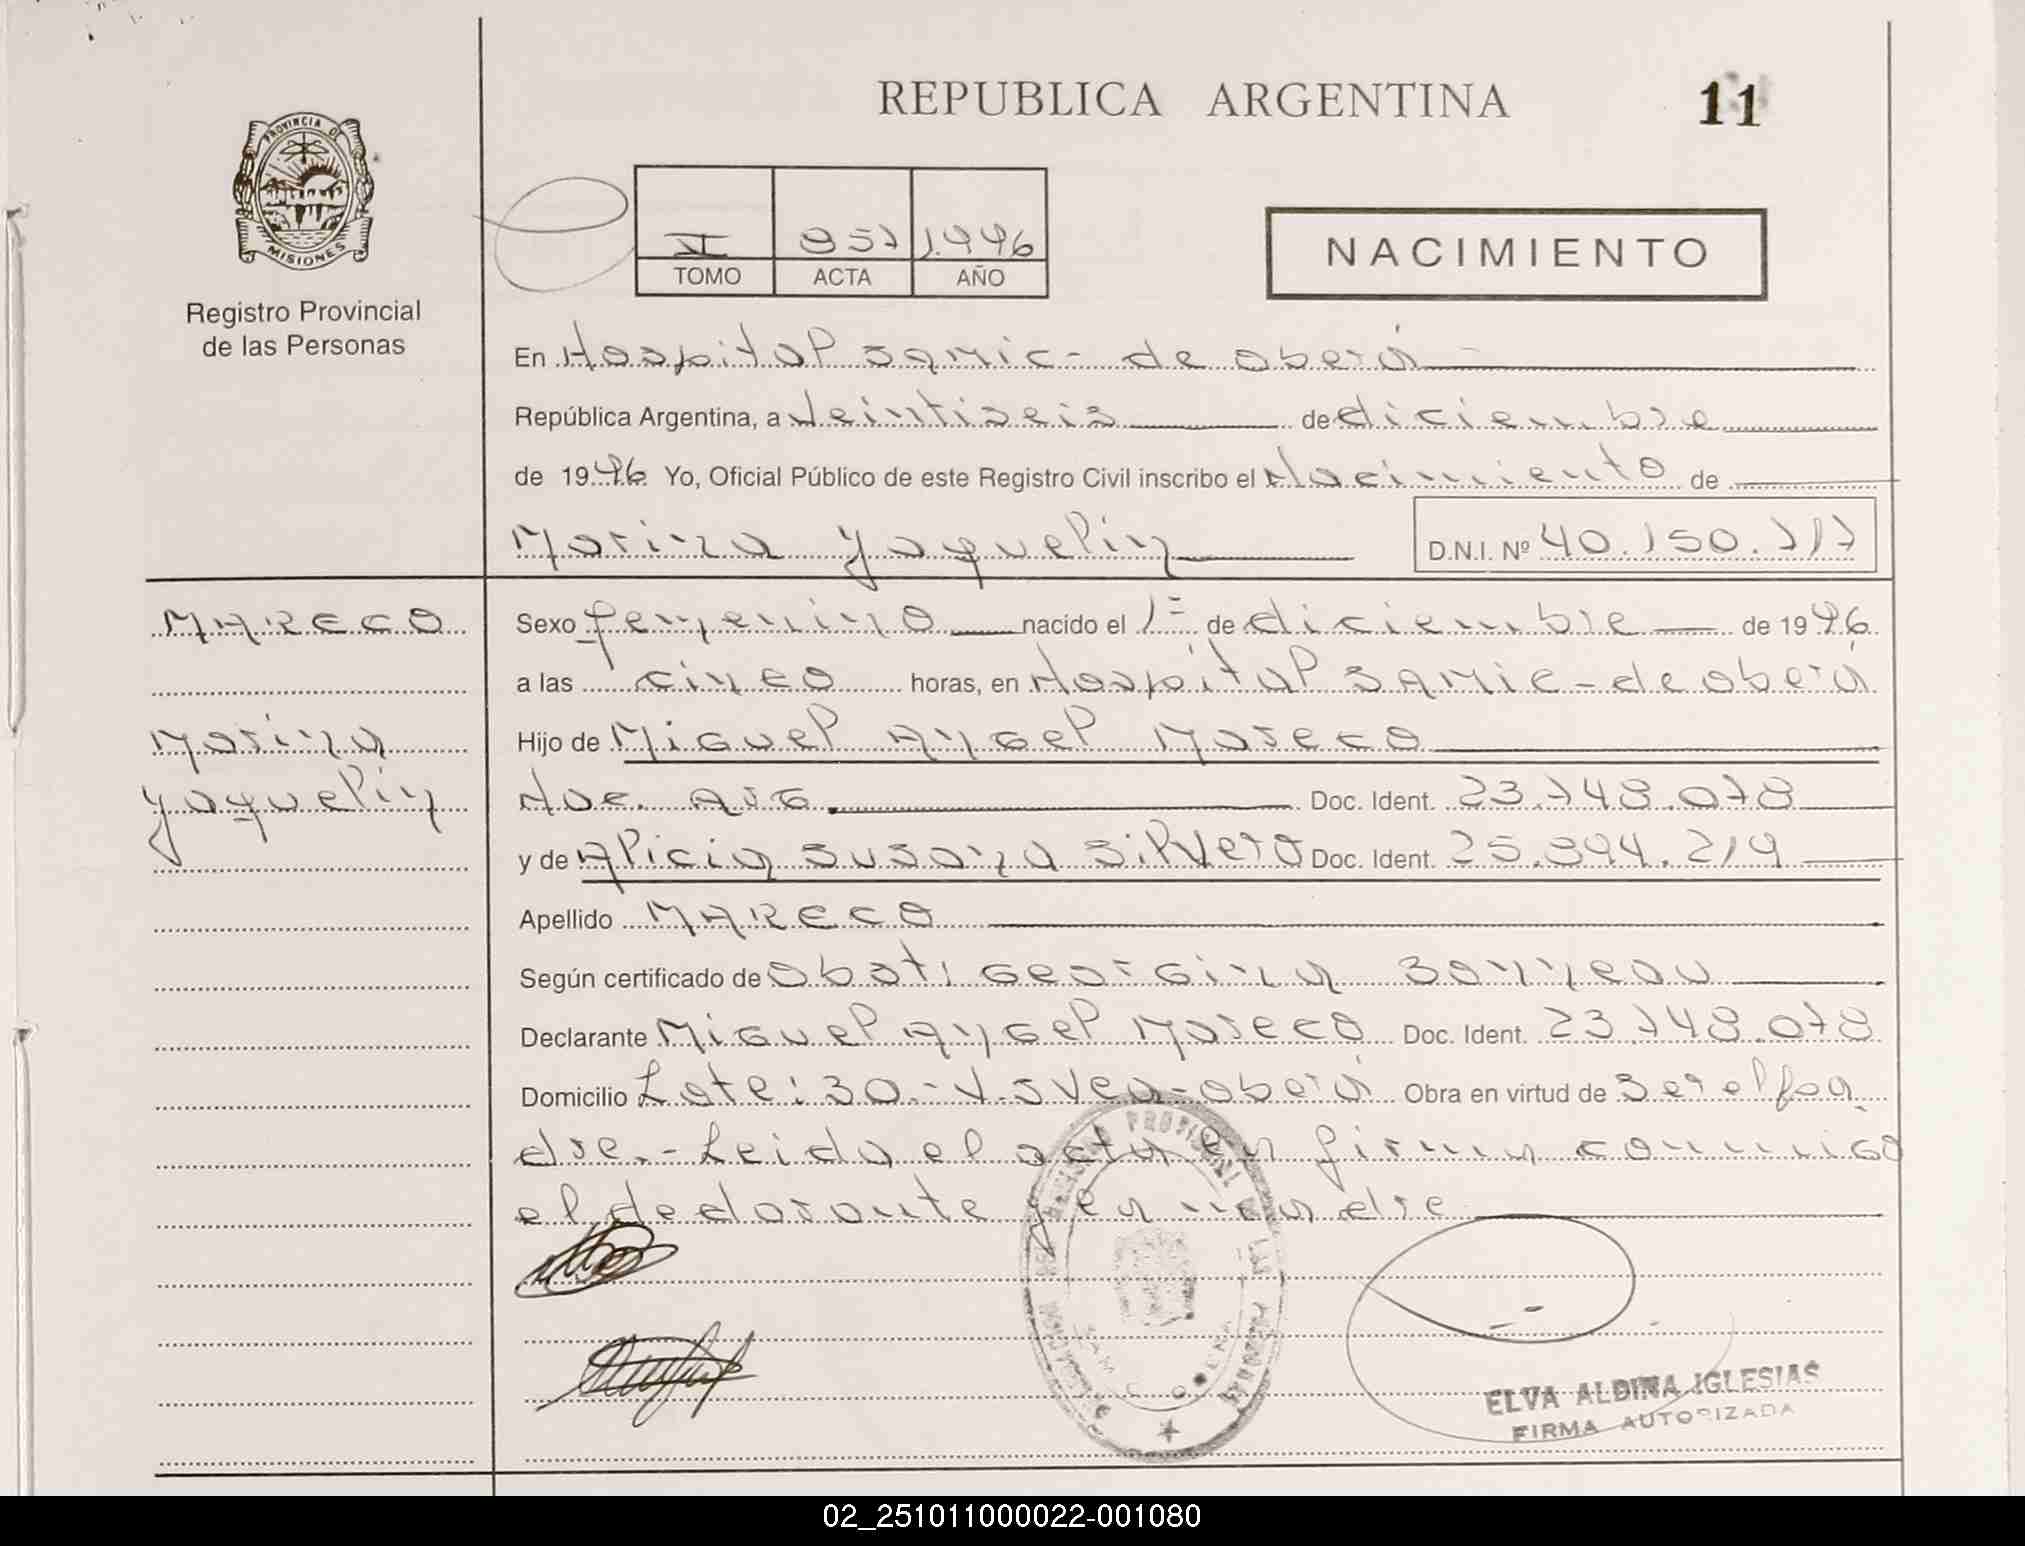 REPUBLICA ARGENTINA
11
PROVINCIA DE
MISIONES
Registro Provincial
de las Personas
VI 957 1.996
TOMO ACTA AÑO
NACIMIENTO
En Hospital SAMIC - de oberá
República Argentina, a Veintiseis de diciembre
de 1996 Yo, Oficial Público de este Registro Civil inscribo el Nacimiento de
Marina Yaquelin D.N.I. Nº 40.150.717
MARECO
Marina
Yaquelin
Sexo femenino nacido el 1º de diciembre de 1996
a las cinco horas, en Hospital SAMIC - de oberá
Hijo de Miguel Angel Mareco
Nac. Arg. Doc. Ident. 23.748.078
y de Alicia Susana Silvero Doc. Ident. 25.894.219
Apellido MARECO
Según certificado de Obst: Georgina
Declarante Miguel Angel Mareco Doc. Ident. 23.748.078
Domicilio Lote: 30.- V. Svea - oberá Obra en virtud de Ser el pa
dre.- Leida el acta en firman conmigo
el declarante y la madre
REGISTRO PROVINCIAL DE LAS PERSONAS
ELVA ALDINA IGLESIAS
FIRMA AUTORIZADA
02_251011000022-001080